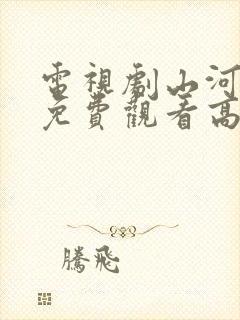 電視劇山河
免費觀看高
騰飛